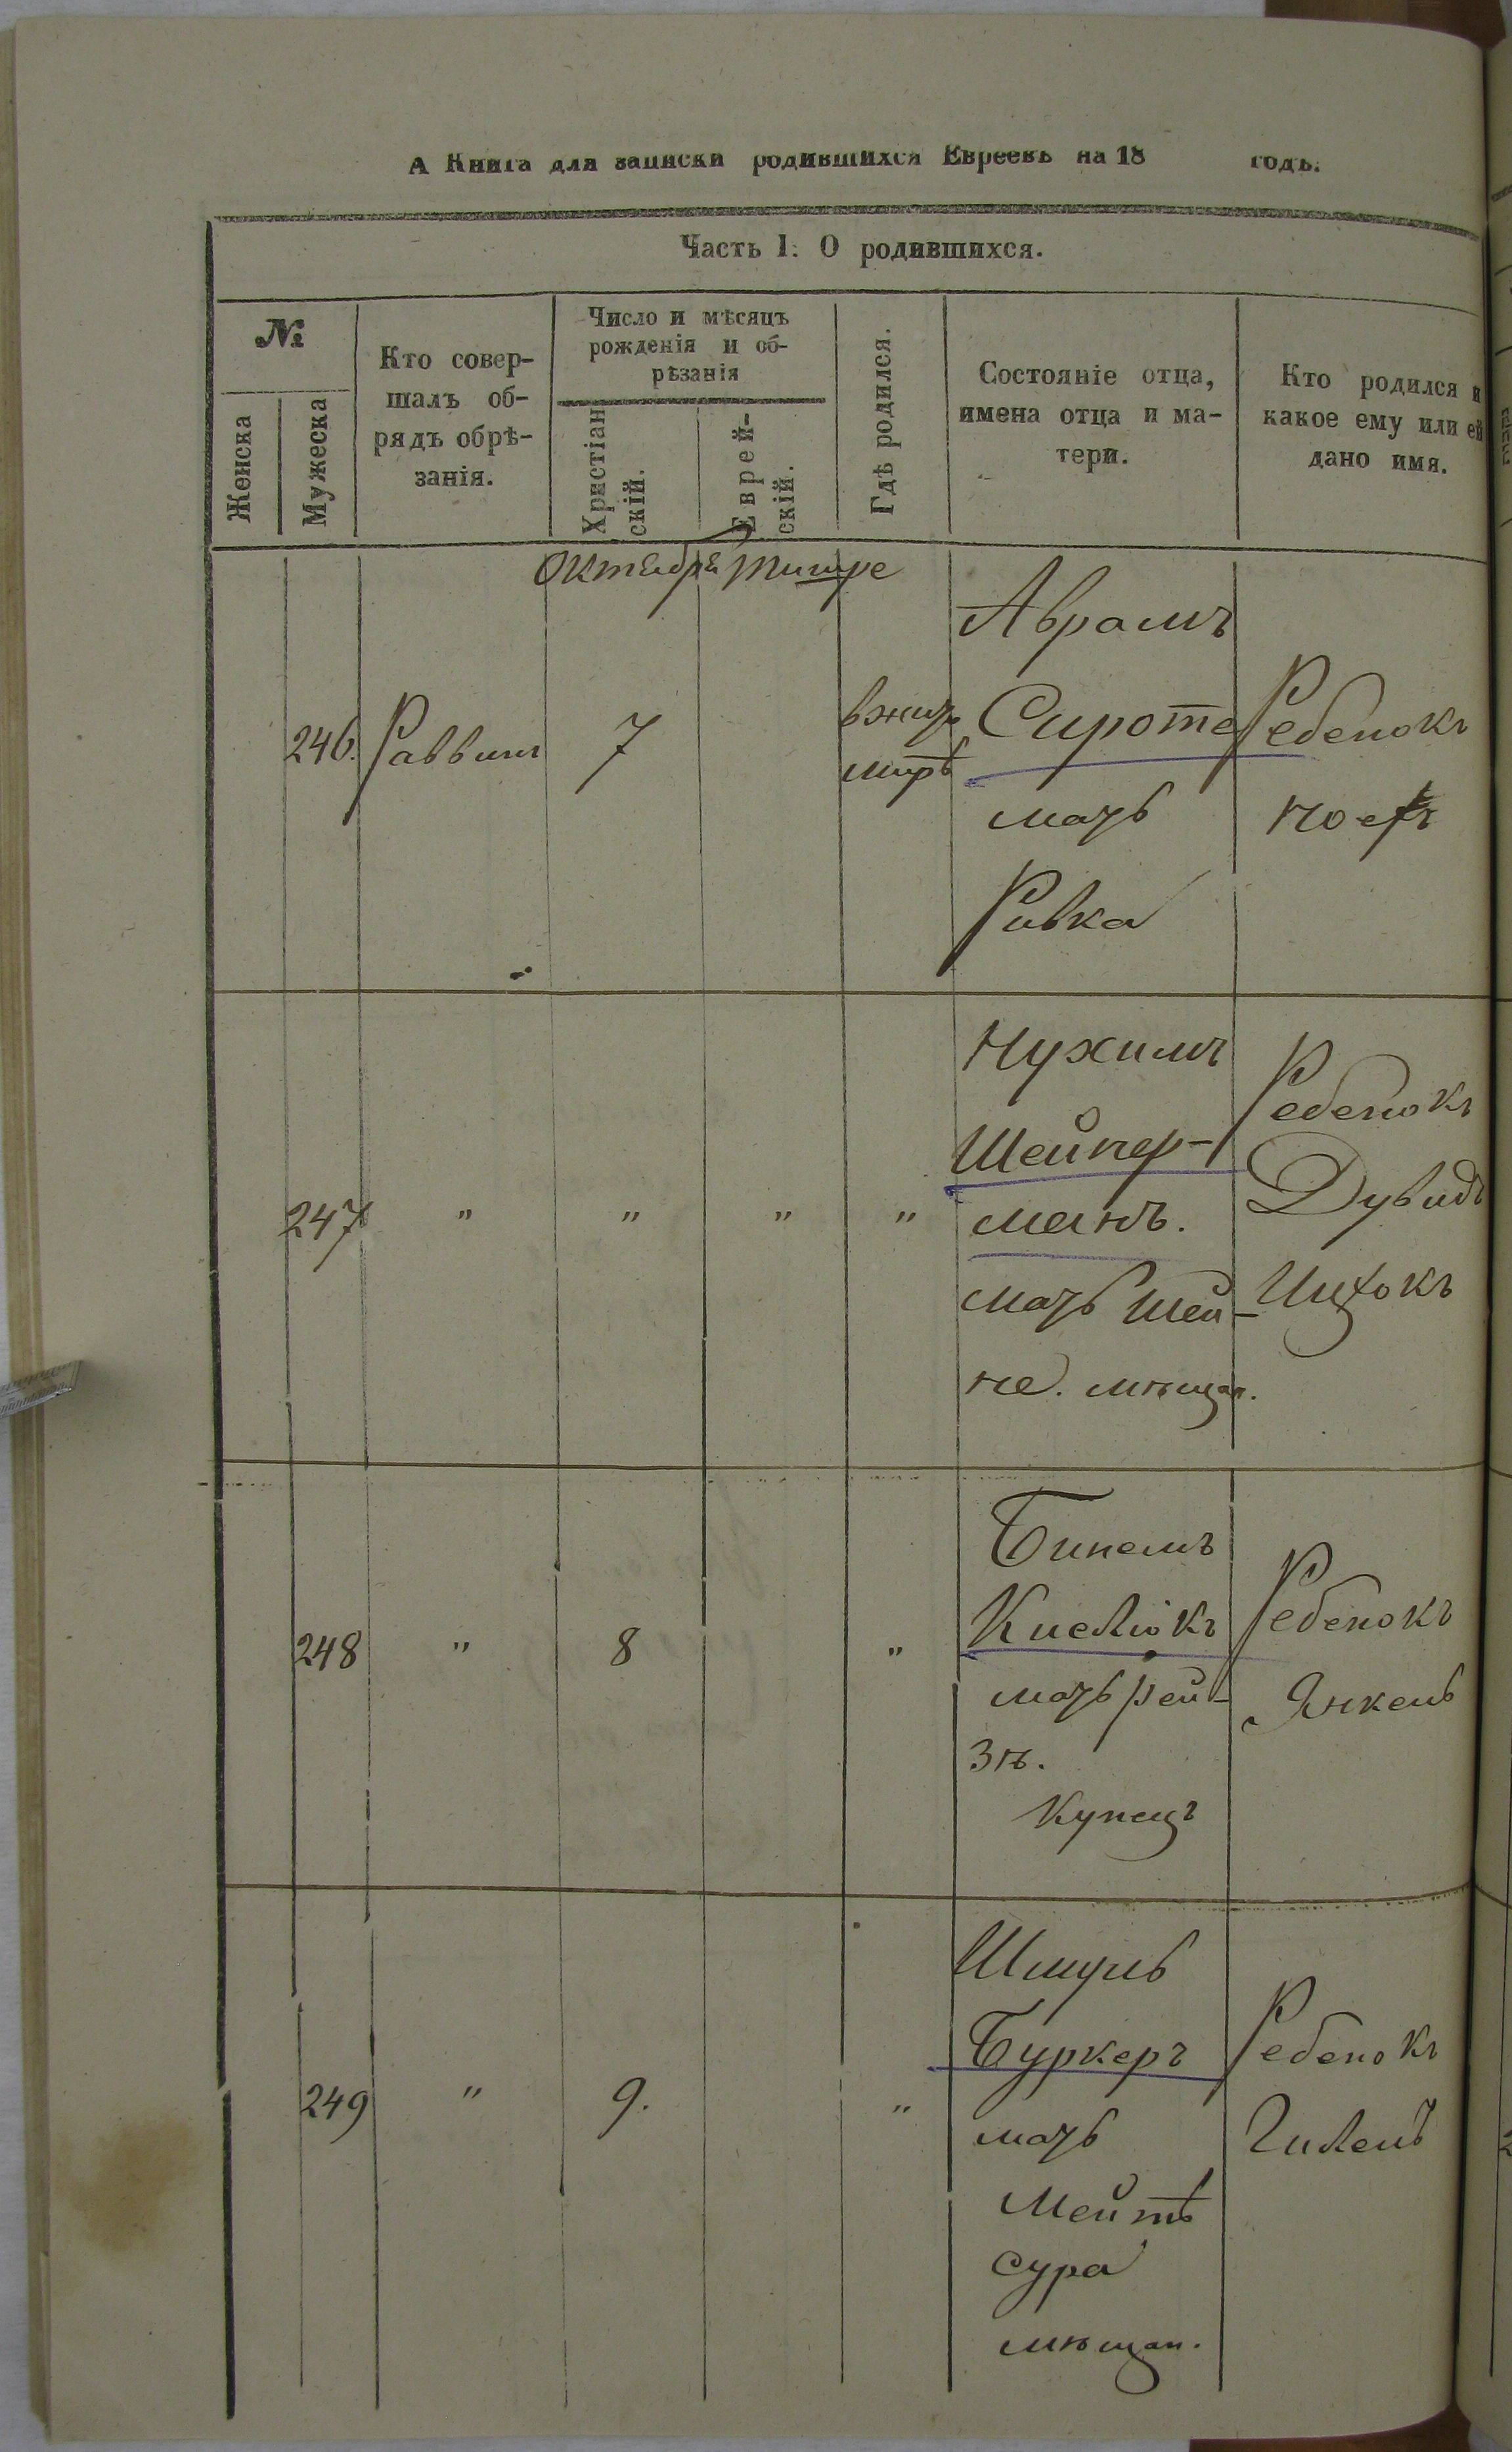 А Книга для записки родившихся Евреевъ на 18 годъ.
Часть I. О родившихся.
№
Женска
Мужеска
Кто совер-
шалъ об-
рядъ обрѣ-
занія.
Число и мѣсяцъ
рожденія и об-
рѣзанія
Христіан
скій.
Еврей-
скій.
Гдѣ родился.
Состояніе отца,
имена отца и ма-
тери.
Кто родился и
какое ему или ей
дано имя.
Октября Тишре
246. Раввинъ 7
вжит
мирѣ
Аврамъ
Сироте
мать
Ривка
Ребенокъ
247 " " " "
Нухимъ
Шейнер-
манъ.
мать Шей-
не. мѣщан.
Ребенокъ
Дувидъ
Ицхокъ
248 " 8 "
Бинемъ
Кислюкъ
мать Рей-
зѣ.
Купецъ
Ребенокъ
Янкель
249 " 9. "
Шмуль
Буркеръ
мать
Мейтѣ
сура
мѣщан.
Ребенокъ